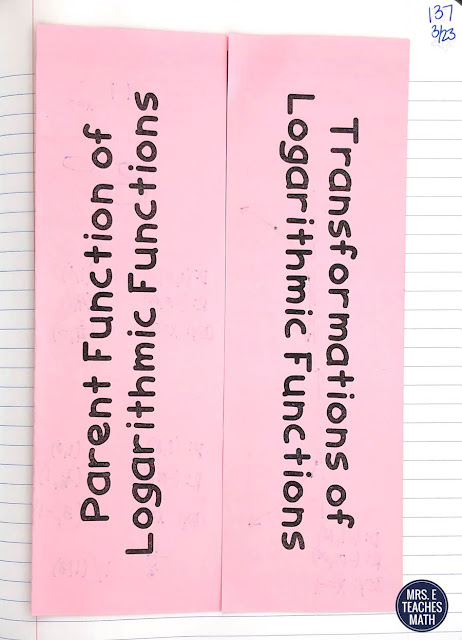 137
3/23
Parent Function of
Logarithmic Functions
Transformations of
Logarithmic Functions
MRS. E
TEACHES
MATH